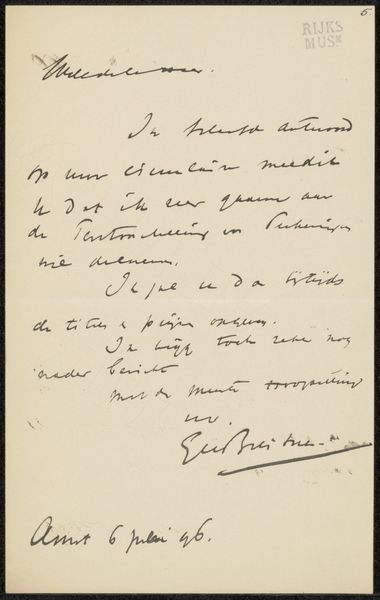 5.
RIJKS
MUSM
Weledele Heer.
In beleefd antwoord
op uw circulaire meedeel
ik dat ik zeer gaarne aan
de Tentoonstelling van Teekeningen
wil deelnemen.
Ik zal u dan tijdig
de titels en prijzen
Ik krijg toch zeker nog
nader bericht
Met de meeste
uw.
G H Breitner
Amst 6 juli 96.